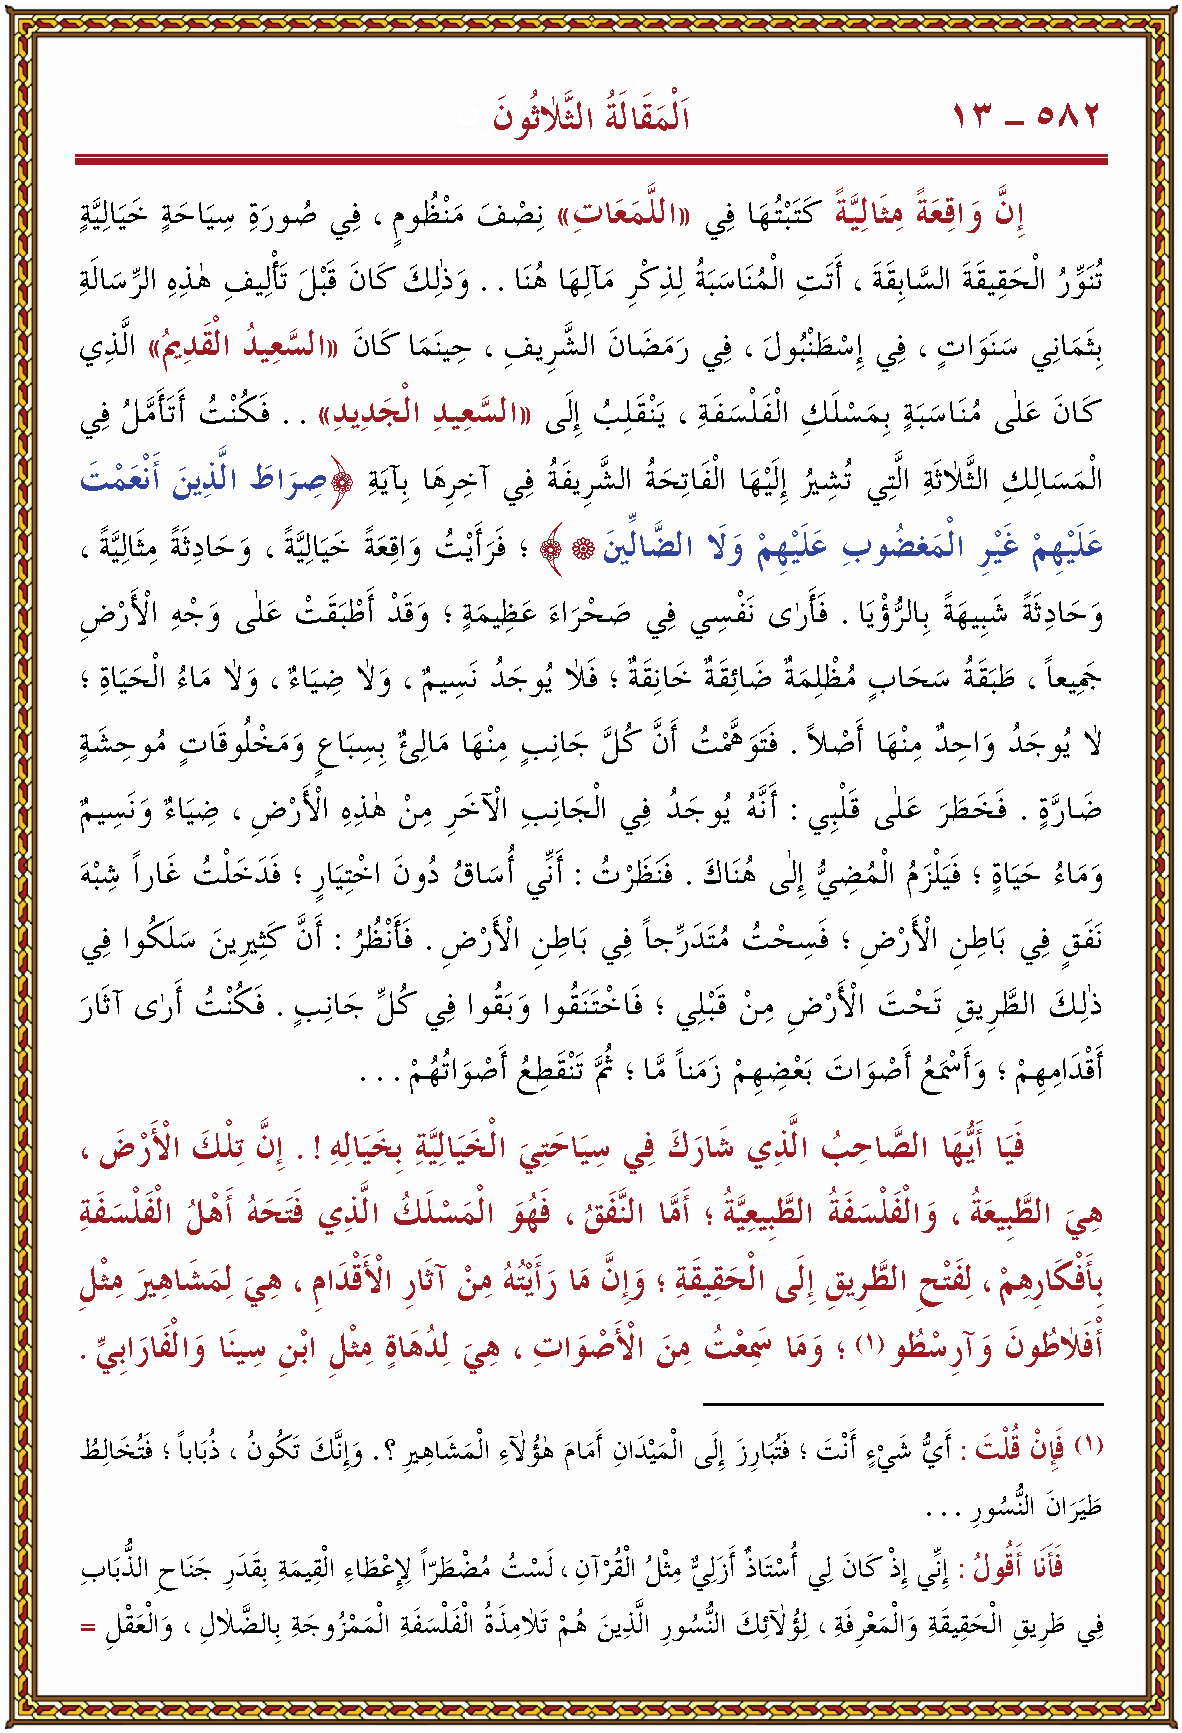 ٥٨٢ ـ ١٣ اَلْمَقَالَةُ الثَّلاٰثُونَ
إِنَّ وَاقِعَةً مِثَالِيَّةً كَتَبْتُهَا فِي «اللَّمَعَاتِ» نِصْفَ مَنْظُومٍ ، فِي صُورَةِ سِيَاحَةٍ خَيَالِيَّةٍ
تُنَوِّرُ الْحَقِيقَةَ السَّابِقَةَ ، أَتَتِ الْمُنَاسَبَةُ لِذِكْرِ مَآلِهَا هُنَا . . وَذٰلِكَ كَانَ قَبْلَ تَأْلِيفِ هٰذِهِ الرِّسَالَةِ
بِثَمَانِي سَنَوَاتٍ ، فِي إِسْطَنْبُولَ ، فِي رَمَضَانَ الشَّرِيفِ ، حِينَمَا كَانَ «السَّعِيدُ الْقَدِيمُ» الَّذِي
كَانَ عَلٰى مُنَاسَبَةٍ بِمَسْلَكِ الْفَلْسَفَةِ ، يَنْقَلِبُ إِلَى «السَّعِيدِ الْجَدِيدِ» . . فَكُنْتُ أَتَأَمَّلُ فِي
الْمَسَالِكِ الثَّلاٰثَةِ الَّتِي تُشِيرُ إِلَيْهَا الْفَاتِحَةُ الشَّرِيفَةُ فِي آخِرِهَا بِآيَةِ ﴿صِرَاطَ الَّذِينَ أَنْعَمْتَ
عَلَيْهِمْ غَيْرِ الْمَغْضُوبِ عَلَيْهِمْ وَلَا الضَّالِّينَ ۞﴾ ؛ فَرَأَيْتُ وَاقِعَةً خَيَالِيَّةً ، وَحَادِثَةً مِثَالِيَّةً ،
وَحَادِثَةً شَبِيهَةً بِالرُّؤْيَا . فَأَرٰى نَفْسِي فِي صَحْرَاءَ عَظِيمَةٍ ؛ وَقَدْ أَطْبَقَتْ عَلٰى وَجْهِ الْأَرْضِ
جَمِيعاً ، طَبَقَةُ سَحَابٍ مُظْلِمَةٌ ضَائِقَةٌ خَانِقَةٌ ؛ فَلاٰ يُوجَدُ نَسِيمٌ ، وَلاٰ ضِيَاءٌ ، وَلاٰ مَاءُ الْحَيَاةِ ؛
لاٰ يُوجَدُ وَاحِدٌ مِنْهَا أَصْلاً . فَتَوَهَّمْتُ أَنَّ كُلَّ جَانِبٍ مِنْهَا مَالِئٌ بِسِبَاعٍ وَمَخْلُوقَاتٍ مُوحِشَةٍ
ضَارَّةٍ . فَخَطَرَ عَلٰى قَلْبِي : أَنَّهُ يُوجَدُ فِي الْجَانِبِ الْآخَرِ مِنْ هٰذِهِ الْأَرْضِ ، ضِيَاءٌ وَنَسِيمٌ
وَمَاءُ حَيَاةٍ ؛ فَيَلْزَمُ الْمُضِيُّ إِلٰى هُنَاكَ . فَنَظَرْتُ : أَنِّي أُسَاقُ دُونَ اخْتِيَارٍ ؛ فَدَخَلْتُ غَاراً شِبْهَ
نَفَقٍ فِي بَاطِنِ الْأَرْضِ ؛ فَسِحْتُ مُتَدَرِّجاً فِي بَاطِنِ الْأَرْضِ . فَأَنْظُرُ : أَنَّ كَثِيرِينَ سَلَكُوا فِي
ذٰلِكَ الطَّرِيقِ تَحْتَ الْأَرْضِ مِنْ قَبْلِي ؛ فَاخْتَنَقُوا وَبَقُوا فِي كُلِّ جَانِبٍ . فَكُنْتُ أَرٰى آثَارَ
أَقْدَامِهِمْ ؛ وَأَسْمَعُ أَصْوَاتَ بَعْضِهِمْ زَمَناً مَّا ؛ ثُمَّ تَنْقَطِعُ أَصْوَاتُهُمْ . . .
فَيَا أَيُّهَا الصَّاحِبُ الَّذِي شَارَكَ فِي سِيَاحَتِيَ الْخَيَالِيَّةِ بِخَيَالِهِ ! . إِنَّ تِلْكَ الْأَرْضَ ،
هِيَ الطَّبِيعَةُ ، وَالْفَلْسَفَةُ الطَّبِيعِيَّةُ ؛ أَمَّا النَّفَقُ ، فَهُوَ الْمَسْلَكُ الَّذِي فَتَحَهُ أَهْلُ الْفَلْسَفَةِ
بِأَفْكَارِهِمْ ، لِفَتْحِ الطَّرِيقِ إِلَى الْحَقِيقَةِ ؛ وَإِنَّ مَا رَأَيْتُهُ مِنْ آثَارِ الْأَقْدَامِ ، هِيَ لِمَشَاهِيرَ مِثْلِ
أَفْلاٰطُونَ وَآرِسْطُو (١) ؛ وَمَا سَمِعْتُ مِنَ الْأَصْوَاتِ ، هِيَ لِدُهَاةٍ مِثْلِ ابْنِ سِينَا وَالْفَارَابِيِّ .
(١) فَإِنْ قُلْتَ : أَيُّ شَيْءٍ أَنْتَ ؛ فَتُبَارِزَ إِلَى الْمَيْدَانِ أَمَامَ هٰؤُلاٰءِ الْمَشَاهِيرِ ؟ . وَإِنَّكَ تَكُونُ ، ذُبَاباً ؛ فَتُخَالِطُ
طَيَرَانَ النُّسُورِ . . .
فَأَنَا أَقُولُ : إِنِّي إِذْ كَانَ لِي أُسْتَاذٌ أَزَلِيٌّ مِثْلُ الْقُرْآنِ ، لَسْتُ مُضْطَرّاً لِإِعْطَاءِ الْقِيمَةِ بِقَدَرِ جَنَاحِ الذُّبَابِ
فِي طَرِيقِ الْحَقِيقَةِ وَالْمَعْرِفَةِ ، لِؤُلاٰئِكَ النُّسُورِ الَّذِينَ هُمْ تَلاٰمِذَةُ الْفَلْسَفَةِ الْمَمْزُوجَةِ بِالضَّلاٰلِ ، وَالْعَقْلِ =